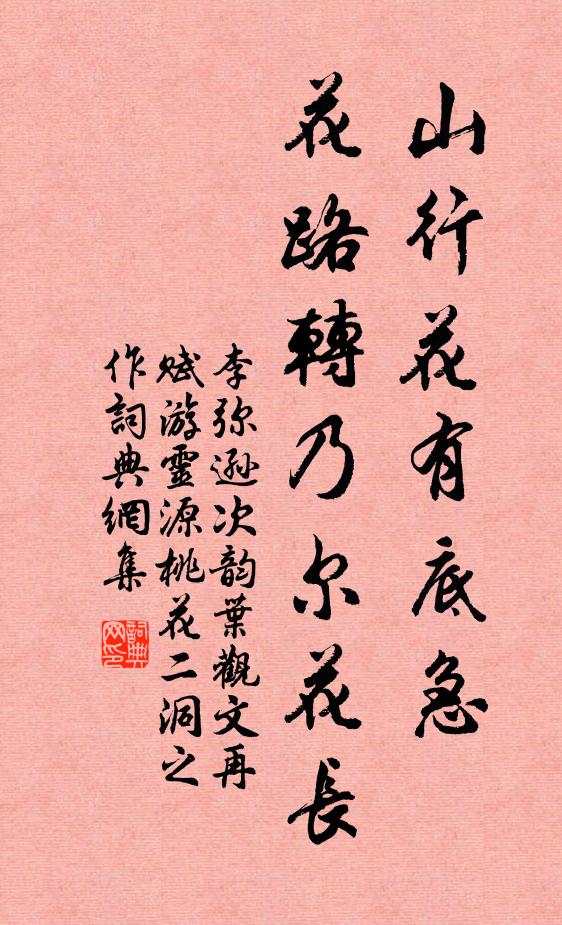 山行花有底急
花路轉乃尔花長
李弥遜次韵葉觀文再
赋游靈源桃花二洞之
作詞典網集
詞典
网印